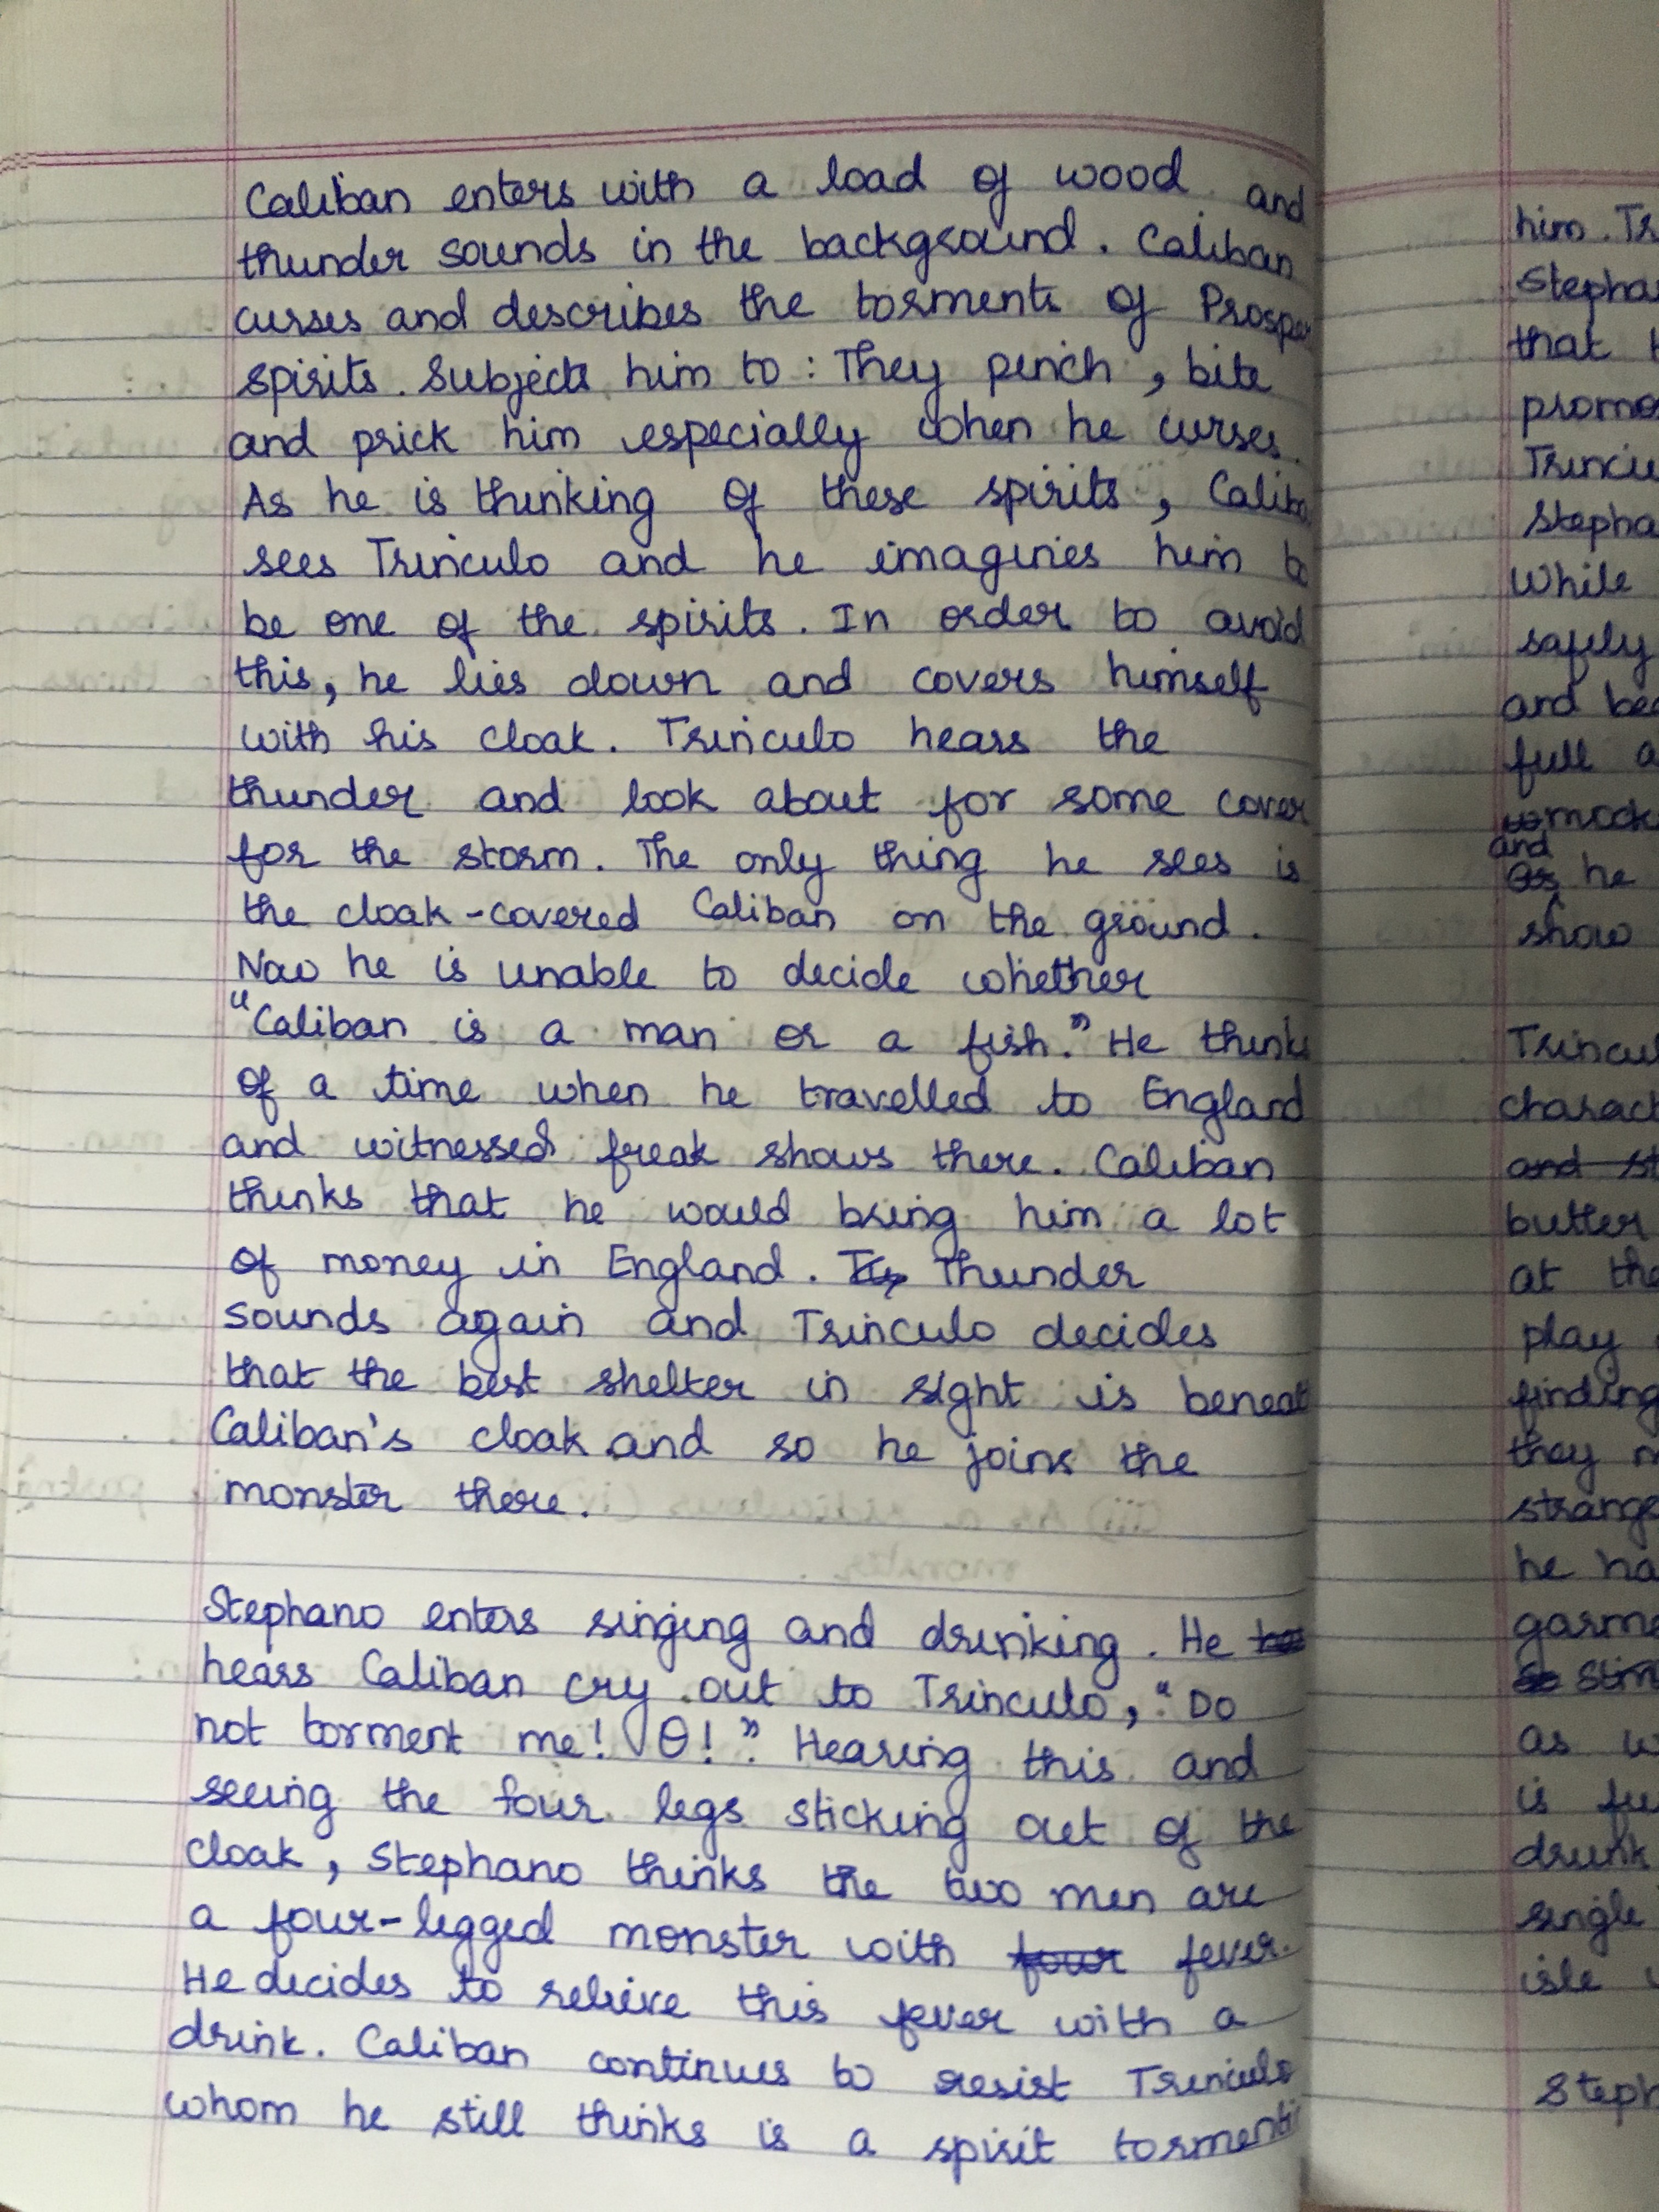 Caliban enters with a load of wood and
thunder sounds in the background. Caliban
curses and describes the torments of Prosper
spirits. Subjects him to : They pinch, bite
and prick him especially when he curses.
As he is thinking of these spirits, Caliba
sees Trinculo and he imagines him to
be one of the spirits. In order to avoid
this, he lies down and covers himself
with his cloak. Trinculo hears the
thunder and look about for some cover
for the storm. The only thing he sees is
the cloak-covered Caliban on the ground.
Now he is unable to decide whether
"Caliban is a man or a fish." He thinks
of a time when he travelled to England
and witnessed freak shows there. Caliban
thinks that he would bring him a lot
of money in England. Thunder
sounds again and Trinculo decides
that the best shelter in sight is beneat
Caliban's cloak and so he joins the
monster there.
Stephano enters singing and drinking. He
hears Caliban cry out to Trinculo, "Do
not torment me! O!" Hearing this and
seeing the four legs sticking out of the
cloak, Stephano thinks the two men are
a four-legged monster with four fever.
He decides to relieve this fever with a
drink. Caliban continues to resist Trinculo
whom he still thinks is a spirit tormenti
him. Tr
Stepha
that h
promo
Trincu
Stepha
While
safely
and bec
full a
mock
and
he
show
Trincul
charact
and st
butter
at the
play
finding
they m
strange
he ha
garme
as w
is fu
drunk
single
isle
Steph